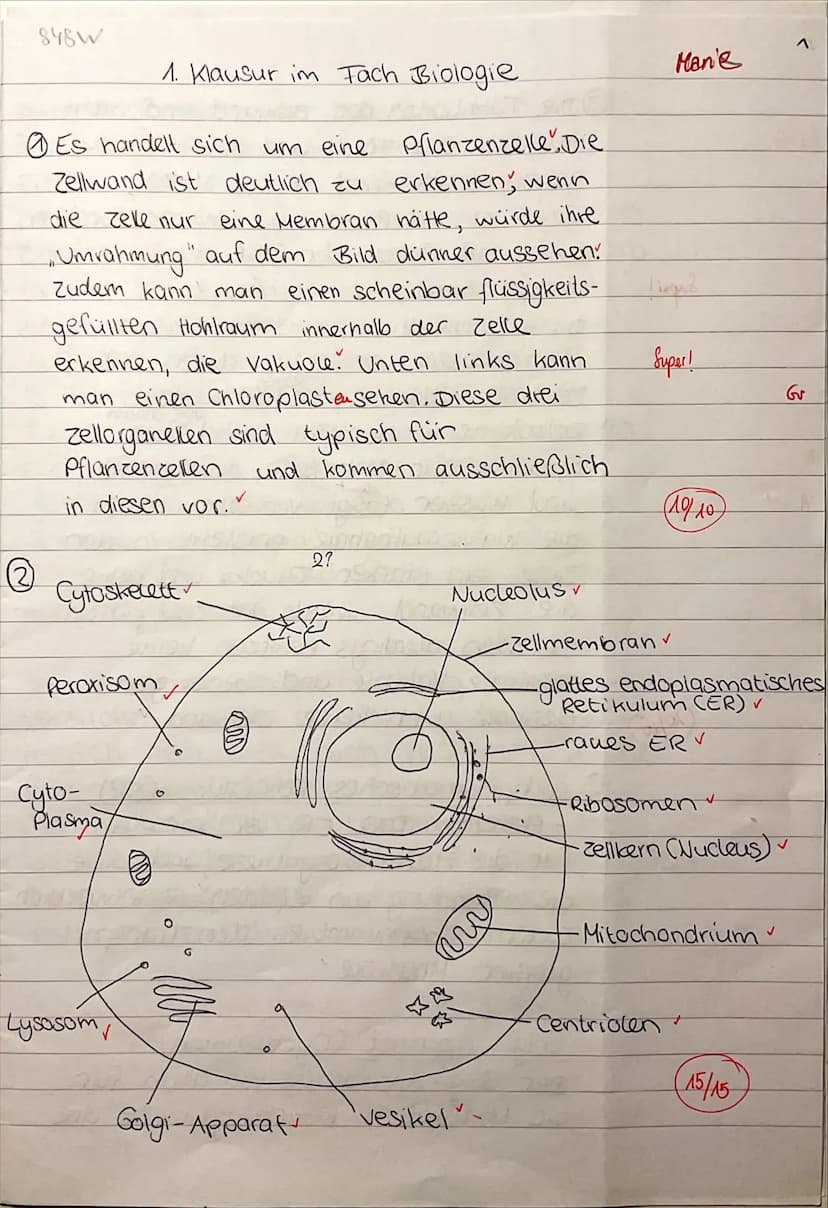 848W
1
1. Klausur im Fach Biologie
Marie
① Es handelt sich um eine Pflanzenzelle. Die
Zellwand ist deutlich zu erkennen, wenn
die Zelle nur eine Membran hätte, würde ihre
„Umrahmung" auf dem Bild dünner aussehen.
Zudem kann man einen scheinbar flüssigkeits-
gefüllten Hohlraum innerhalb der Zelle
erkennen, die Vakuole. Unten links kann
Super!
man einen Chloroplasten sehen. Diese drei
Gr
Zellorganellen sind typisch für
Pflanzenzellen und kommen ausschließlich
in diesen vor.
10/10
②
2?
Cytoskelett
Nucleolus
Zellmembran
Peroxisom
glattes endoplasmatisches
Retikulum (ER)
raues ER
Cyto-
Plasma
Ribosomen
Zellkern (Nucleus)
Mitochondrium
Lysosom
Centriolen
15/15
Golgi-Apparat
Vesikel